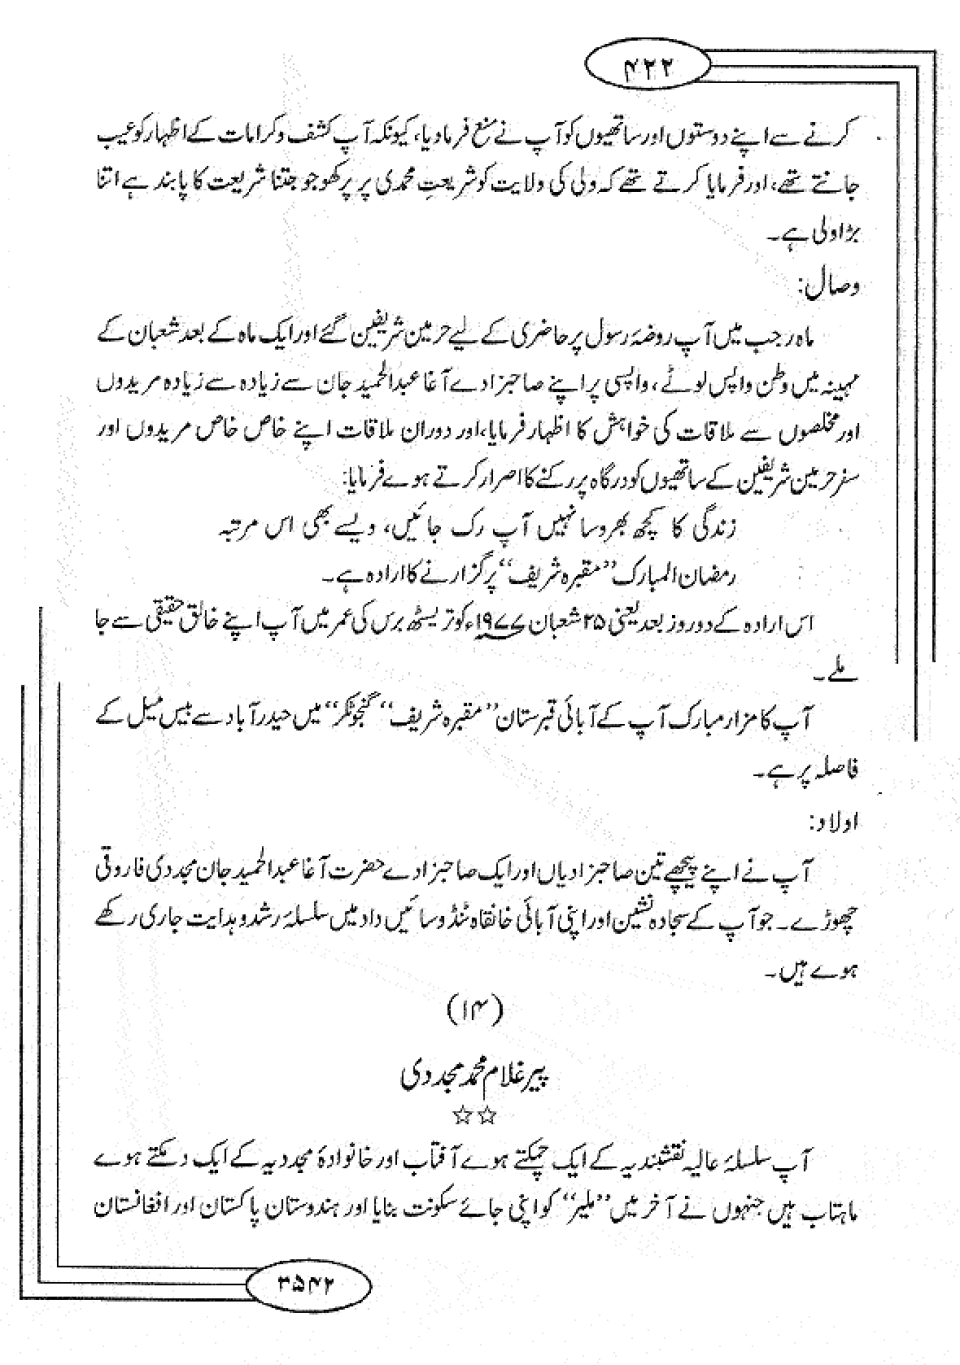 ۴۲۲
کرنے سے اپنے دوستوں اور ساتھیوں کو آپ نے منع فرمادیا، کیونکہ آپ کشف و کرامات کے اظہار کو عیب
جانتے تھے، اور فرمایا کرتے تھے کہ ولی کی ولایت کو شریعتِ محمدی پر پرکھو جو جتنا شریعت کا پابند ہے اتنا
بڑا ولی ہے۔
وصال:
ماہ رجب میں آپ روضۂ رسول پر حاضری کے لیے حرمین شریفین گئے اور ایک ماہ کے بعد شعبان کے
مہینہ میں وطن واپس لوٹے، واپسی پر اپنے صاحبزادے آغا عبدالحمید جان سے زیادہ سے زیادہ مریدوں
اور مخلصوں سے ملاقات کی خواہش کا اظہار فرمایا، اور دوران ملاقات اپنے خاص خاص مریدوں اور
سفر حرمین شریفین کے ساتھیوں کو درگاہ پر رکنے کا اصرار کرتے ہوے فرمایا:
زندگی کا کچھ بھروسا نہیں آپ رک جائیں، ویسے بھی اس مرتبہ
رمضان المبارک ”مقبرہ شریف“ پر گزارنے کا ارادہ ہے۔
اس ارادہ کے دو روز بعد یعنی ۲۵ شعبان ۱۹۷۷ء کو تریسٹھ برس کی عمر میں آپ اپنے خالق حقیقی سے جا
ملے۔
آپ کا مزار مبارک آپ کے آبائی قبرستان ”مقبرہ شریف“ ”گنجو ٹکر“ میں حیدر آباد سے بیس میل کے
فاصلہ پر ہے۔
اولاد:
آپ نے اپنے پیچھے تین صاحبزادیاں اور ایک صاحبزادے حضرت آغا عبدالحمید جان مجددی فاروقی
چھوڑے۔ جو آپ کے سجادہ نشین اور اپنی آبائی خانقاہ ٹنڈو سائیں داد میں سلسلۂ رشد و ہدایت جاری رکھے
ہوے ہیں۔
(۱۴)
پیر غلام محمد مجددی
☆☆
آپ سلسلۂ عالیہ نقشبندیہ کے ایک چمکتے ہوے آفتاب اور خانوادۂ مجددیہ کے ایک دمکتے ہوے
ماہتاب ہیں جنہوں نے آخر میں ”ملیر“ کو اپنی جائے سکونت بنایا اور ہندوستان پاکستان اور افغانستان
۳۵۴۲